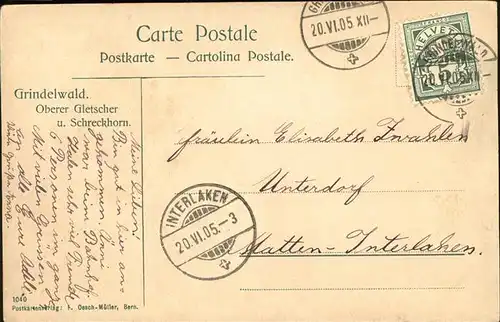 Carte Postale
Postkarte — Cartolina Postale.
20.VI.05.XII—
HELVETIA
GRINDELWALD
20.VI.05.XII
Grindelwald.
Oberer Gletscher
u. Schreckhorn.
Meine Lieben!
Bin gut in hier an-
gekommen.
war beim Bahnhof.
Haben sehr viel
6 Personen im ganzen
Mit vielen Grüssen
an alle Eure
Fräulein Elisabeth Zwahlen
Unterdorf
Matten-Interlaken.
INTERLAKEN
20.VI.05.–3
1040
Postkartenverlag: F. Oesch-Müller, Bern.